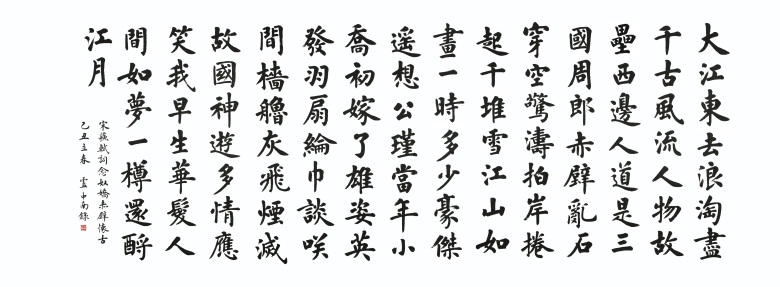 大江東去浪淘盡
千古風流人物故
壘西邊人道是三
國周郎赤壁亂石
穿空驚濤拍岸捲
起千堆雪江山如
畫一時多少豪傑
遙想公瑾當年小
喬初嫁了雄姿英
發羽扇綸巾談咲
間檣艣灰飛煙滅
故國神遊多情應
笑我早生華髮人
間如夢一樽還酹
江月
宋蘇軾詞念奴嬌赤壁懷古
己丑立春 雲中南錄